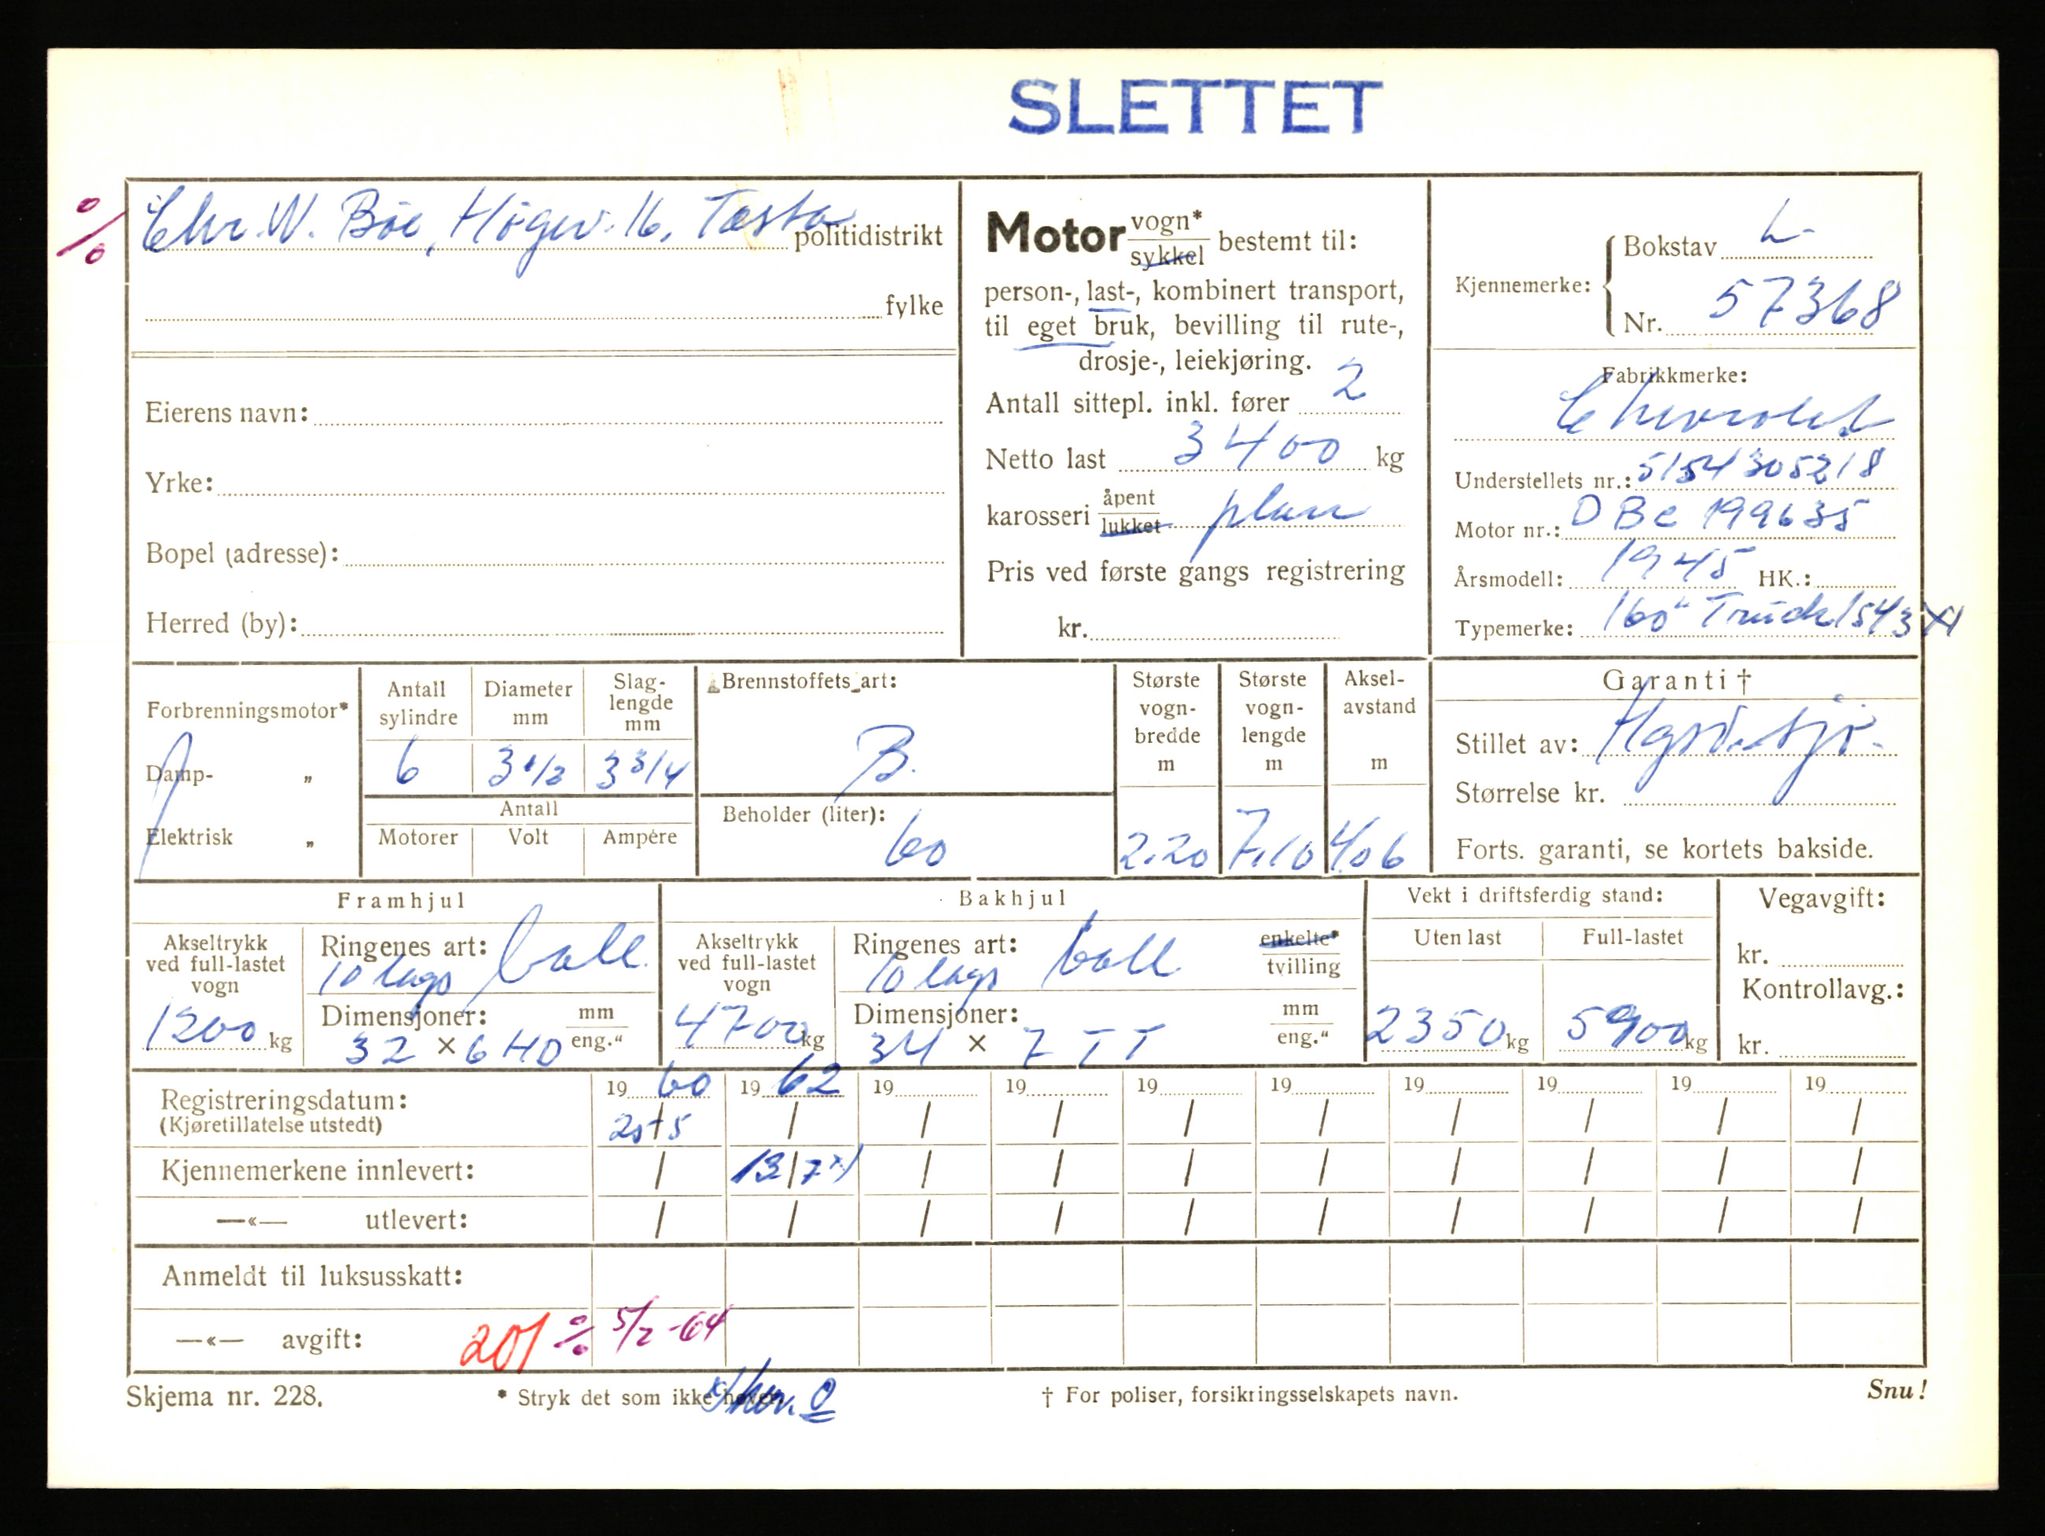 SLETTET
% Chr. W. Bøe, Høgev. 16, Tasta politidistrikt
fylke
Eierens navn:
Yrke:
Bopel (adresse):
Herred (by):
Motor vogn* sykkel bestemt til:
person-, last-, kombinert transport,
til eget bruk, bevilling til rute-,
drosje-, leiekjøring.
Antall sittepl. inkl. fører 2
Netto last 3400 kg
karosseri åpent lukket plan
Pris ved første gangs registrering
kr.
Kjennemerke: Bokstav L-
Nr. 57368
Fabrikkmerke:
Chevrolet
Understellets nr.: 5154305218
Motor nr.: DBC 199635
Årsmodell: 1945 HK.:
Typemerke: 160" Truck 1543 X1
Forbrenningsmotor*
Damp- „
Elektrisk „
Antall sylindre 6
Diameter mm 3 1/2
Slag-lengde mm 3 3/4
Antall
Motorer Volt Ampére
Brennstoffets art:
B.
Beholder (liter):
60
Største vogn-bredde m 2.20
Største vogn-lengde m 7.10
Aksel-avstand m 4.06
Garanti †
Stillet av:
Størrelse kr.
Forts. garanti, se kortets bakside.
Framhjul
Akseltrykk ved full-lastet vogn 1200 kg
Ringenes art: 10 lags ball.
Dimensjoner: mm eng." 32 × 6 HD
Bakhjul
Akseltrykk ved full-lastet vogn 4700 kg
Ringenes art: 10 lags ball enkelte* tvilling
Dimensjoner: mm eng." 34 × 7 TT
Vekt i driftsferdig stand:
Uten last Full-lastet
2350 kg 5900 kg
Vegavgift:
kr.
Kontrollavg.:
kr.
19 60 19 62 19 19 19 19 19 19 19 19
Registreringsdatum:
(Kjøretillatelse utstedt) 20/5 / / / / / / / / /
Kjennemerkene innlevert: / 13/7 x) / / / / / / / /
—«— utlevert: / / / / / / / / / /
Anmeldt til luksusskatt:
—«— avgift: 201 % 5/2-64
Skjema nr. 228.
* Stryk det som ikke høver.
† For poliser, forsikringsselskapets navn.
Snu!